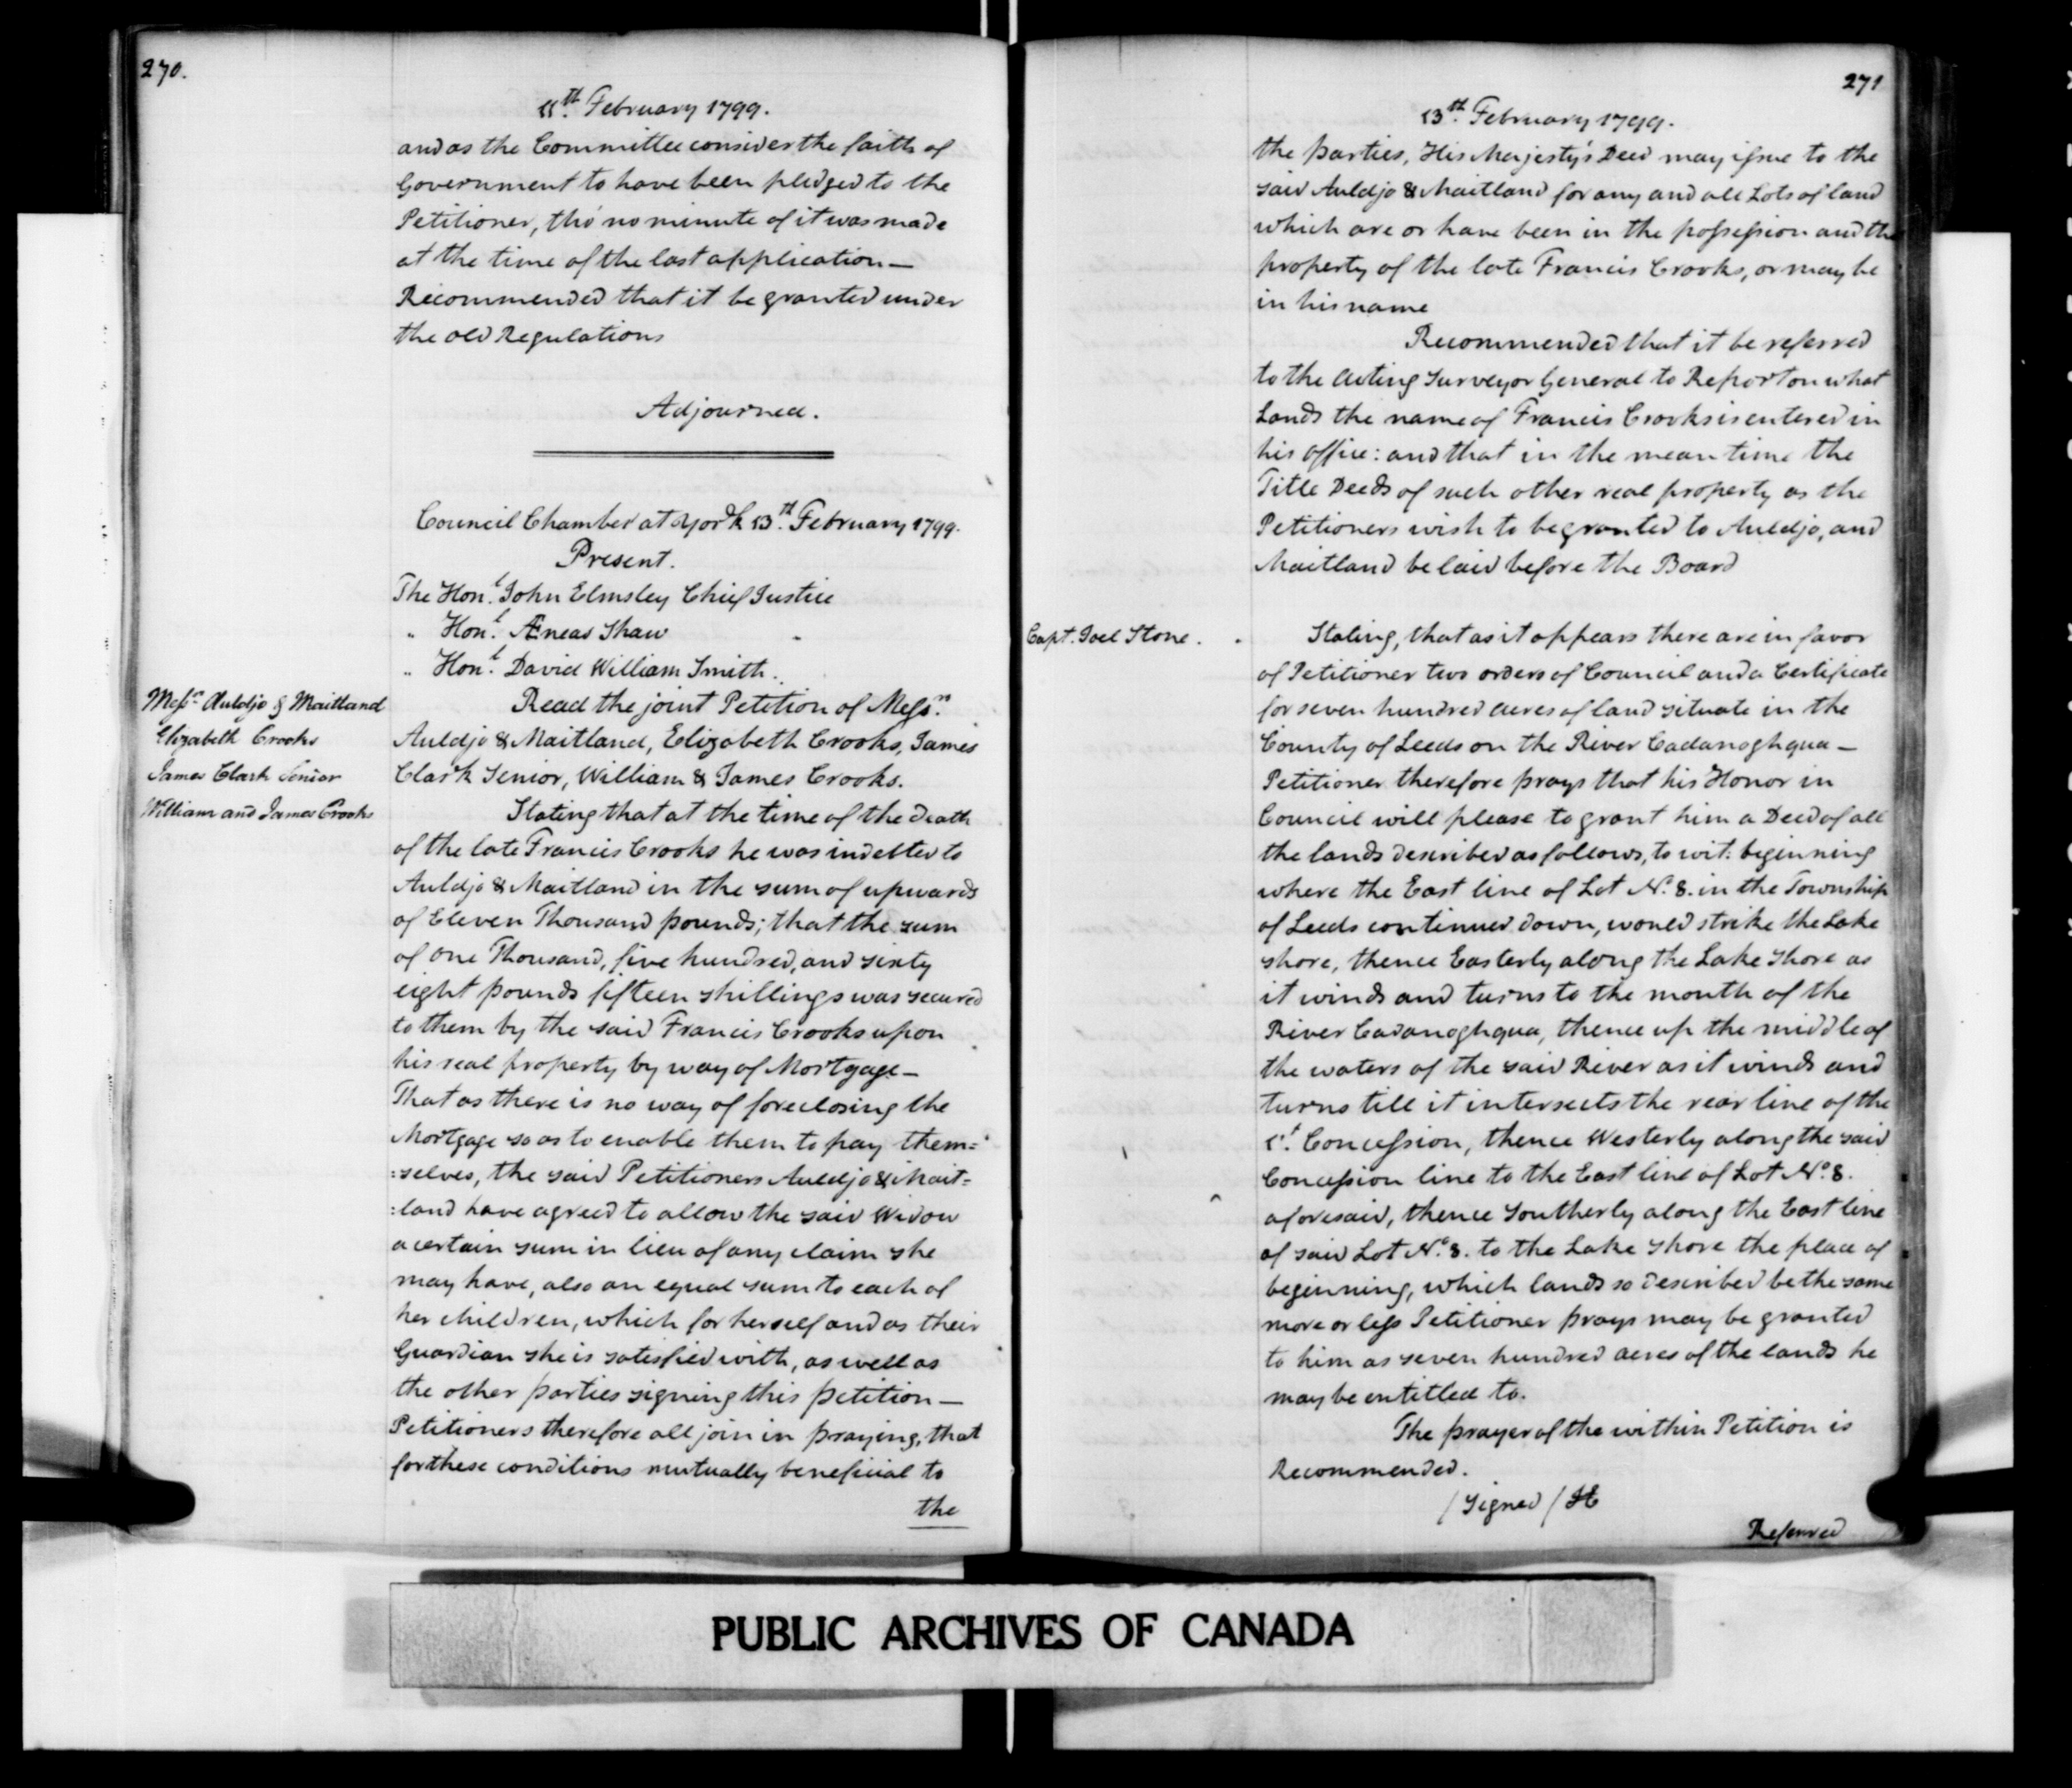 270.
11th. February 1799.
and as the Committee consider the faith of
Government to have been pledged to the
Petitioner, tho' no minute of it was made
at the time of the last application —
Recommended that it be granted under
the old Regulations
Adjourned.
Council Chamber at York 13th. February 1799.
Present.
The Honl. John Elmsley Chief Justice
" Honl. Æneas Shaw
" Honl. David William Smith.
Messrs. Auldjo & Maitland
Elizabeth Crooks
James Clark Senior
William and James Crooks
Read the joint Petition of Messrs.
Auldjo & Maitland, Elizabeth Crooks, James
Clark Senior, William & James Crooks.
Stating that at the time of the death
of the late Francis Crooks he was indebted to
Auldjo & Maitland in the sum of upwards
of Eleven Thousand pounds; that the sum
of One Thousand, five hundred, and sixty
eight pounds fifteen shillings was secured
to them by the said Francis Crooks upon
his real property by way of Mortgage —
That as there is no way of foreclosing the
Mortgage so as to enable them to pay them=
=selves, the said Petitioners Auldjo & Mait=
=land have agreed to allow the said Widow
a certain sum in lieu of any claim she
may have, also an equal sum to each of
her children, which for herself and as their
Guardian she is satisfied with, as well as
the other parties signing this petition —
Petitioners therefore all join in praying, that
for these conditions mutually beneficial to
the
271
13th. February 1799.
the parties, His Majesty's Deed may issue to the
said Auldjo & Maitland for any and all Lots of land
which are or have been in the possession and the
property of the late Francis Crooks, or may be
in his name
Recommended that it be referred
to the Acting Surveyor General to Report on what
Lands the name of Francis Crooks is entered in
his office: and that in the mean time the
Title Deeds of such other real property as the
Petitioners wish to be granted to Auldjo, and
Maitland be laid before the Board
Capt. Joel Stone.
Stating, that as it appears there are in favor
of Petitioner two orders of Council and a Certificate
for seven hundred acres of land situate in the
County of Leeds on the River Cadanoghqua —
Petitioner therefore prays that his Honor in
Council will please to grant him a Deed of all
the lands described as follows, to wit: beginning
where the East line of Lot No. 8. in the Township
of Leeds continued down, would strike the Lake
shore, thence Easterly along the Lake Shore as
it winds and turns to the mouth of the
River Cadanoghqua, thence up the middle of
the waters of the said River as it winds and
turns till it intersects the rear line of the
1st. Concession, thence Westerly along the said
Concession line to the East line of Lot No. 8.
aforesaid, thence Southerly along the East line
of said Lot No. 8. to the Lake Shore the place of
beginning, which lands so described be the same
more or less Petitioner prays may be granted
to him as seven hundred acres of the lands he
may be entitled to.
The prayer of the within Petition is
Recommended.
/Signed/ JE
Referred
PUBLIC ARCHIVES OF CANADA